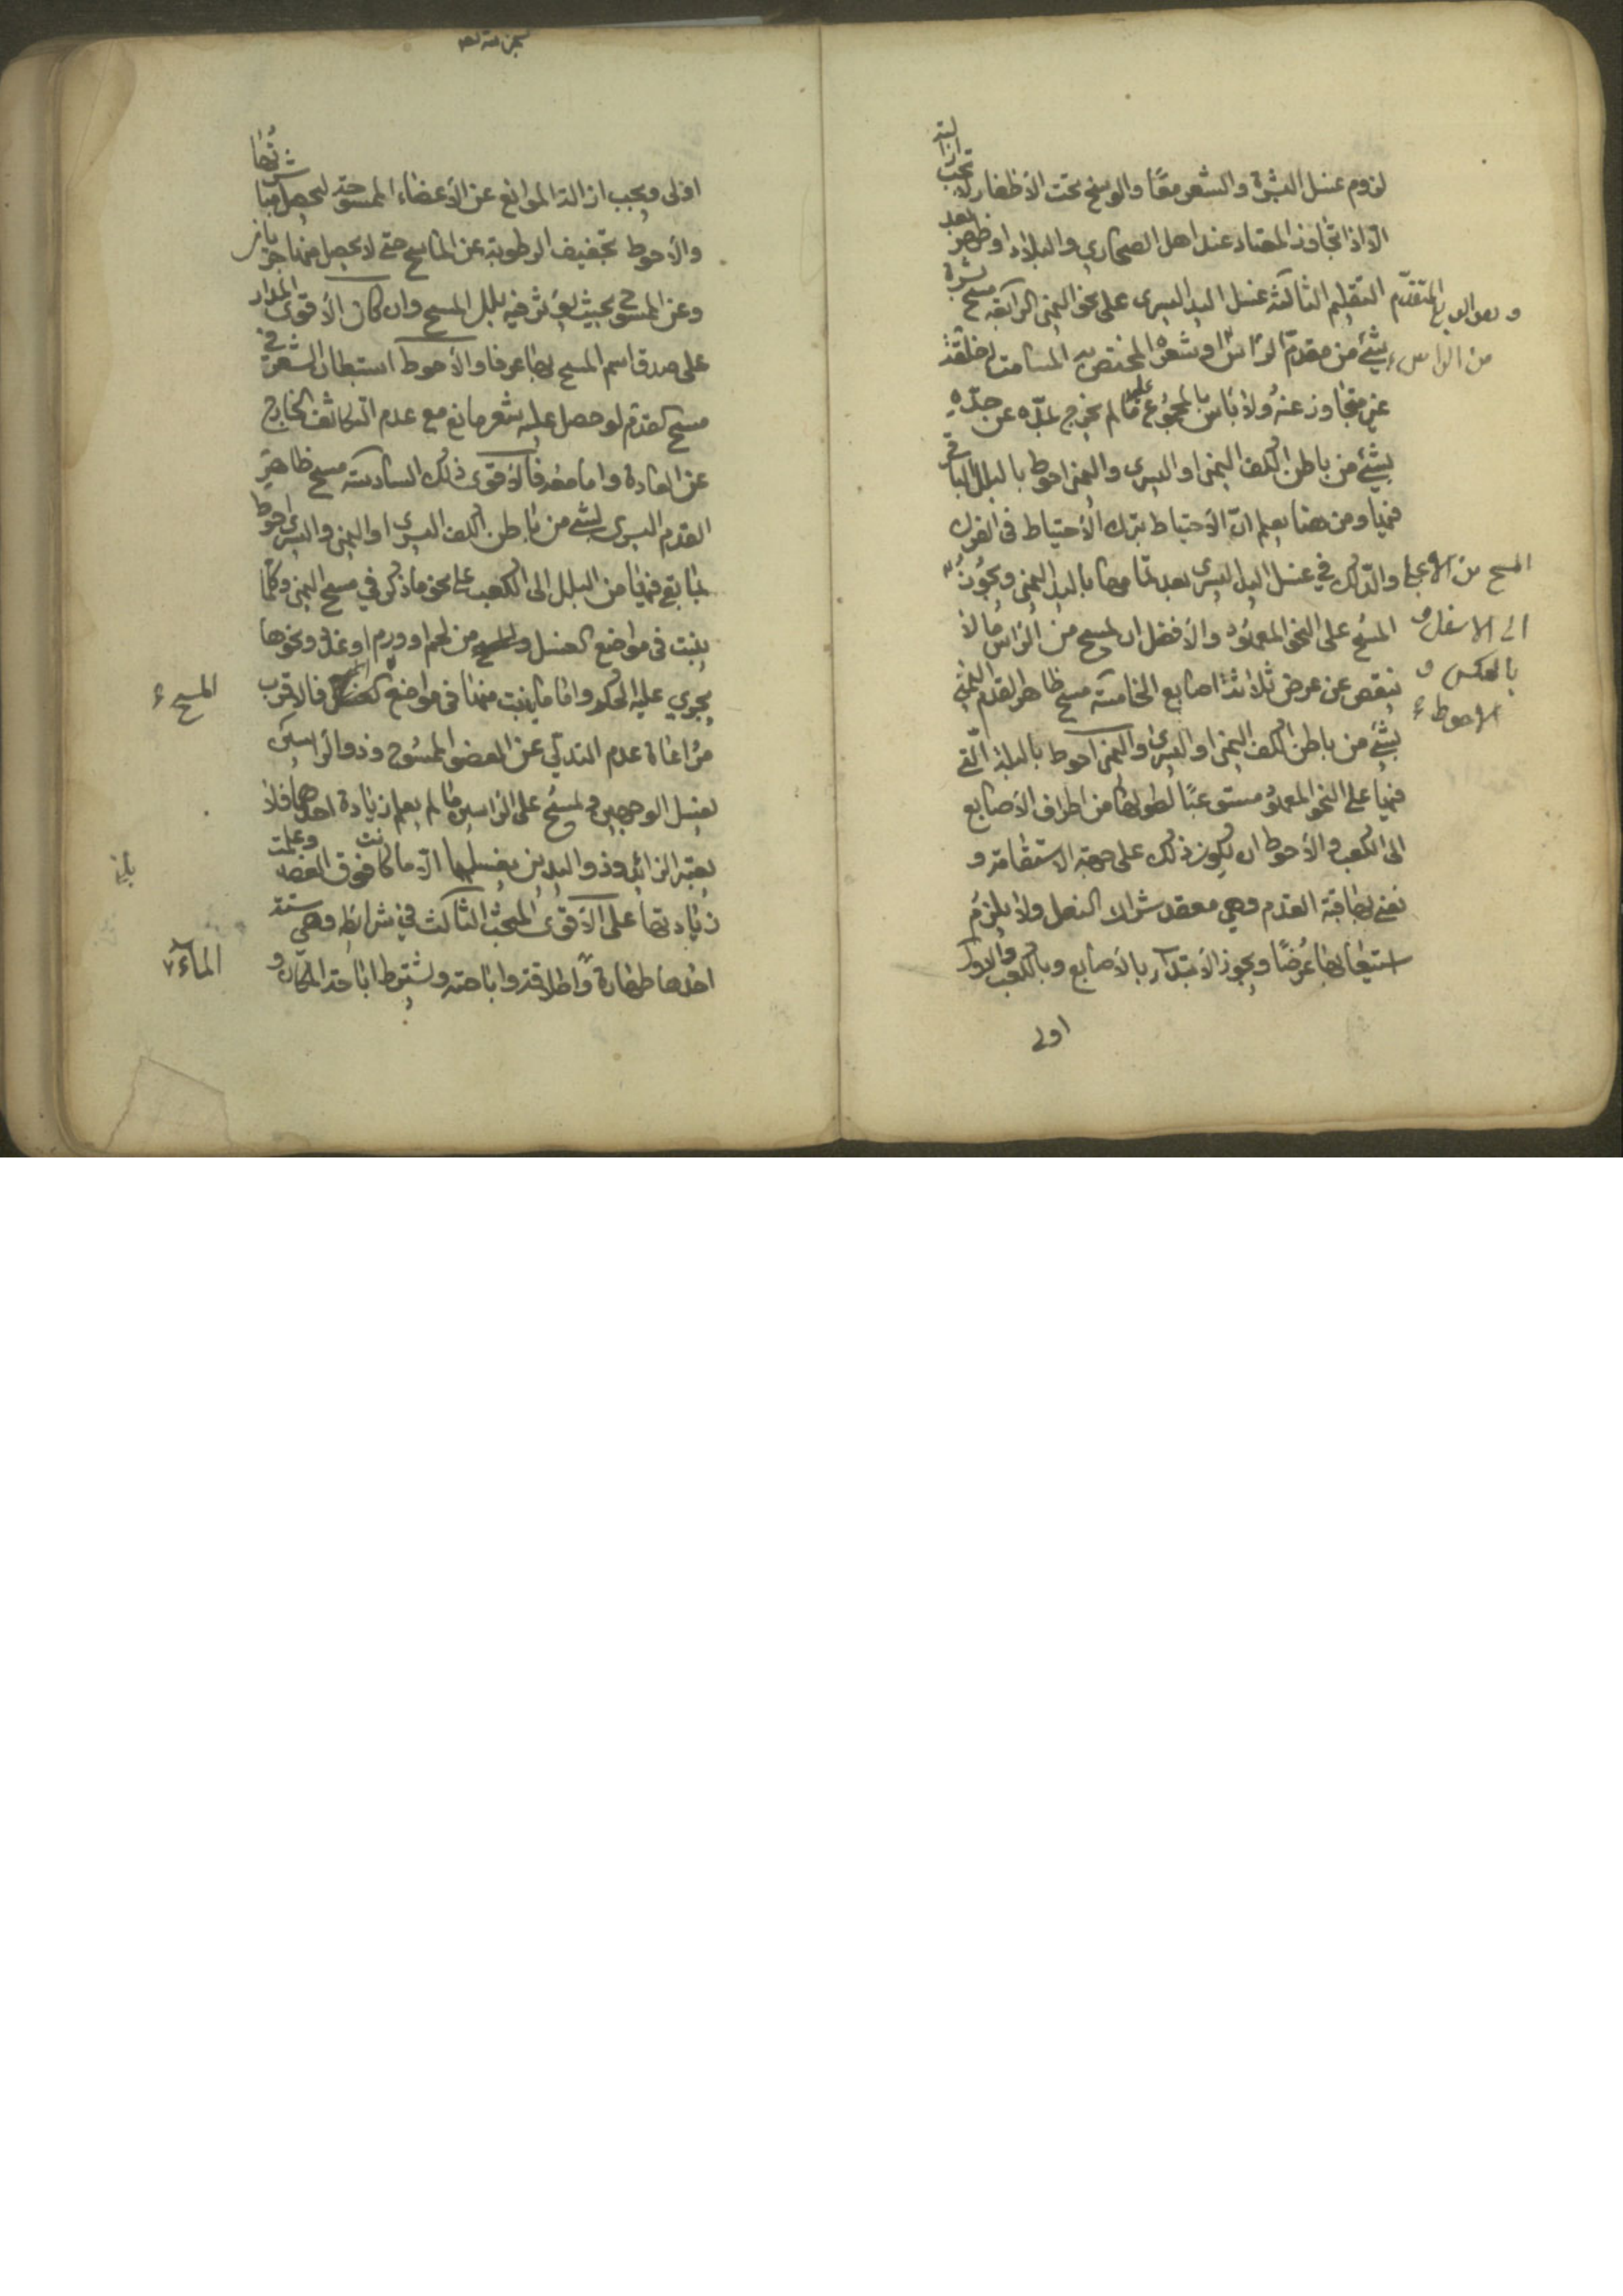 لزوم غسل البشرة والشعر معًا والوسخ تحت الأظفار لا تجب ازالته
الّا اذا تجاوز المعتاد عند اهل الصحاري والبلاد او ظهر بعد
التقليم الثالثة غسل اليد اليسرى على نحو اليمنى الرابعة مسح بشرة
المتقدّم
من الراس
بشئ من مقدم الراس او شعره المختص به المسامت لخلقته
غير متجاوز عنه ولا باس بالمجموع عليه ما لم يخرج بمدّه عن حدّه
بشئ من باطن الكف اليمنى او اليسرى واليمنى احوط بالبلل الباقي
فيها ومن هنا يعلم انّ الأحتياط بترك الأحتياط في الغرف
والدلك في غسل اليد اليسرى بعد تمامها باليد اليمنى ويجوز
المسح من الاعلى
الى الاسفل و
بالعكس و
الاحوط
المسح على النحو المعهود والأفضل ان يمسح من الراس ما لا
ينقص عن عرض ثلاثة اصابع الخامسة مسح ظاهر القدم اليمنى
بشئ من باطن الكف اليمنى او اليسرى واليمنى احوط بالبلة الّتي
فيها على النحو المعهود مستوعبًا لطولها من اطراف الأصابع
الى الكعب والأحوط ان يكون ذلك على جهة الاستقامة و
نعني بها قبة القدم وهي معقد شراك النعل ولا يلزم
استيعابها عرضًا ويجوز الأبتداء بالأصابع وبالكعب والاول
اولى
اولى ويجب ازالة الموانع عن الأعضاء الممسوحة ليحصل مباشرتها
والأحوط تجفيف الرطوبة عن الماسح حتى لا يحصل منها جريان
وعن الممسوح بحيث يؤثر فيه بلل المسح وان كان الأقوى المدار
على صدق اسم المسح بها عرفا والأحوط استبطان الشعر في
مسح القدم لو حصل عليه شعر مانع مع عدم التكاثف الخارج
عن العادة واما معه فالأقوى ذلك السادسة مسح ظاهر
القدم اليسرى بشئ من باطن الكف اليسرى او اليمنى واليسرى احوط
بما بقي فيها من البلل الى الكعب على نحو ما ذكر في مسح اليمنى وكلّما
ينبت في مواضع الغسل من لحم او ورم او غدد ونحوها
يجري عليه الحكم واما ما ينبت منها في مواضع المسح فالاقرب
المسح
مراعاة عدم التدلّي عن العضو الممسوح وذو الراسين
يغسل الوجهين ويمسح على الراسين ما لم يعلم زيادة احدهما فلا
يعتبر الزائد وذو اليدين يغسلهما الّا ما كانت فوق المفصل وعلمت
زيادتها على الأقوى المبحث الثالث في شرائطه وهي ستة
احدها طهارة واطلاقه واباحته ويشترط اباحة المكان و
الماء